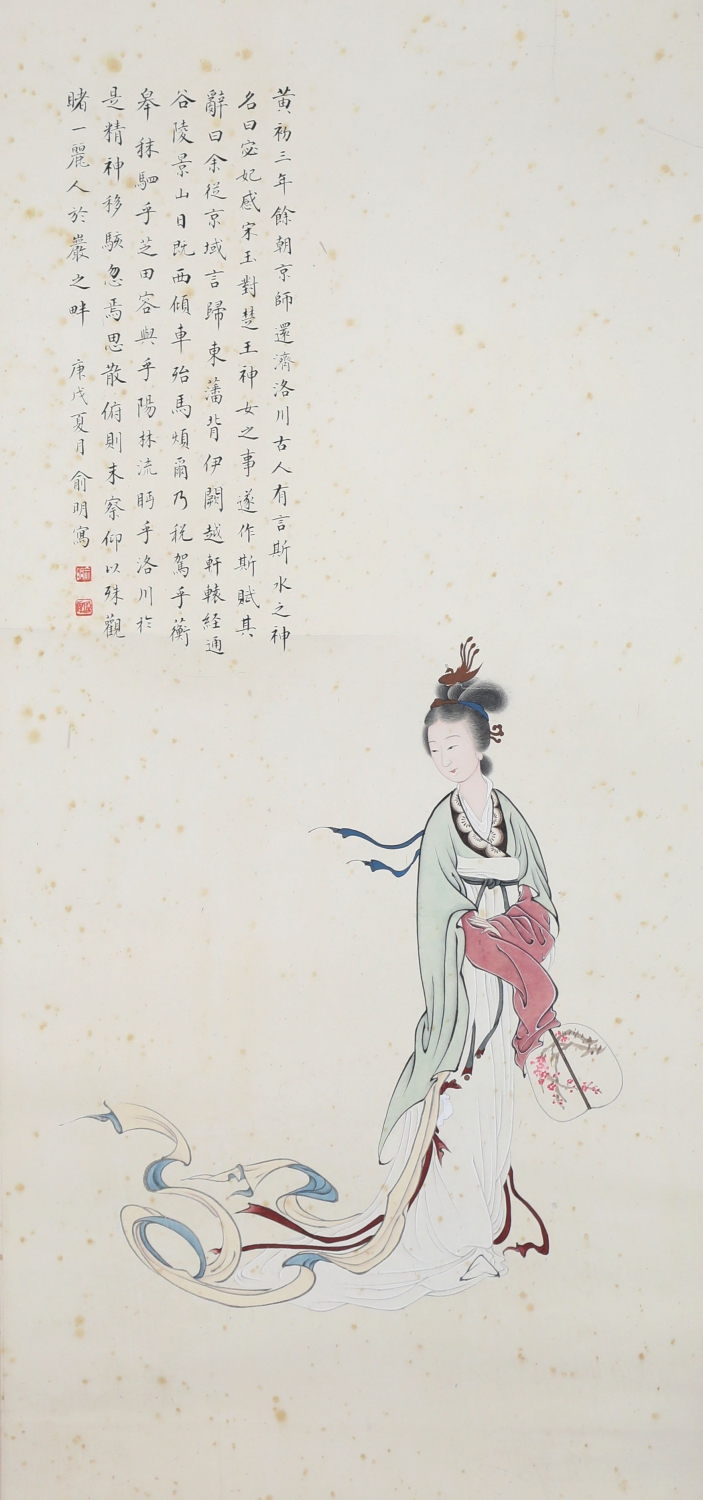 黃初三年餘朝京師還濟洛川古人有言斯水之神
名曰宓妃感宋玉對楚王神女之事遂作斯賦其
辭曰余從京域言歸東藩背伊闕越軒轅経通
谷陵景山日既西傾車殆馬煩爾乃稅駕乎蘅
皋秣駟乎芝田容與乎陽林流眄乎洛川於
是精神移駭忽焉思散俯則未察仰以殊觀
睹一麗人於巖之畔 庚戌夏月 俞明寫